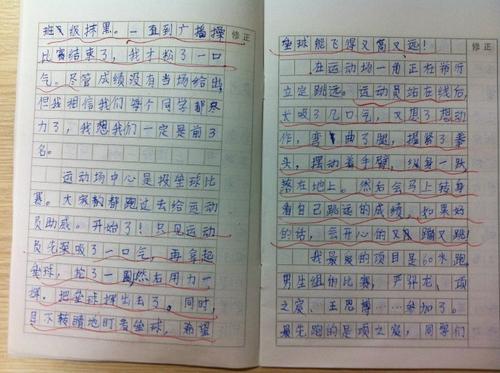 班级抹黑。一直到广播操
修正
比赛结束了，我才松了一口
气。尽管成绩没有当场给出
但我相信我们每个同学都尽
力了，我想我们一定是前3
名。
运动场中心是投垒球比
赛。大家都跑过去给运动
员助威。开始了！只见运动
员先深吸了一口气，再拿起
垒球，抡了一圈然后用力一
挥，把垒球挥出去了。同时
目不转睛地盯着垒球，希望
垒球能飞得又高又远！
修正
在运动场一角正在举行
立定跳远。运动员站在线后，
大吸了几口气，又想了想动
作，弯曲了腿，握紧了拳
头，摆动着手臂，纵身一跃
落在地上。然后会马上转身
看自己跳远的成绩，如果好
的话，会开心的又蹦又跳！
我最爱的项目是60米跑
男生组的比赛，严升龙、项
之宸、王思博…参加了。
最先跑的是项之宸，同学们